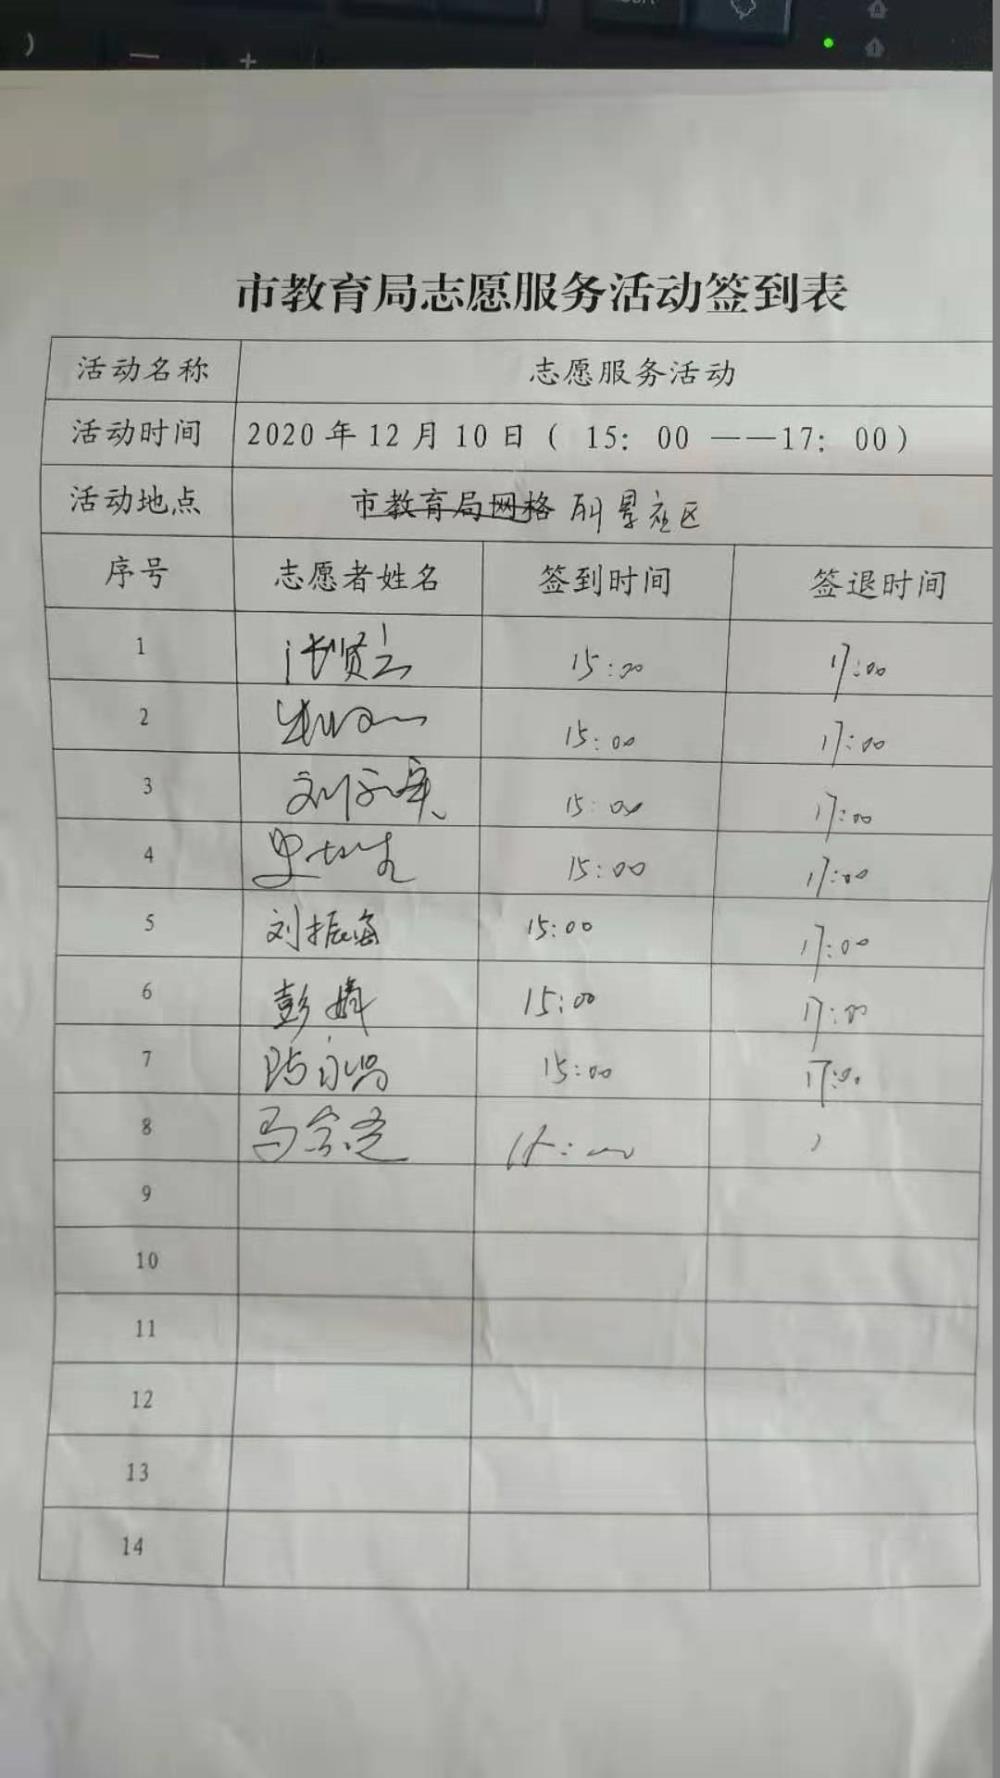 市教育局志愿服务活动签到表
活动名称 志愿服务活动
活动时间 2020年12月10日( 15: 00 ——17: 00)
活动地点 市教育局网格 社区
序号 志愿者姓名 签到时间 签退时间
1 15:00 17:00
2 15:00 17:00
3 刘 15:00 17:00
4 史 15:00 17:00
5 刘振海 15:00 17:00
6 彭婧 15:00 17:00
7 15:00 17:00
8 马
9
10
11
12
13
14